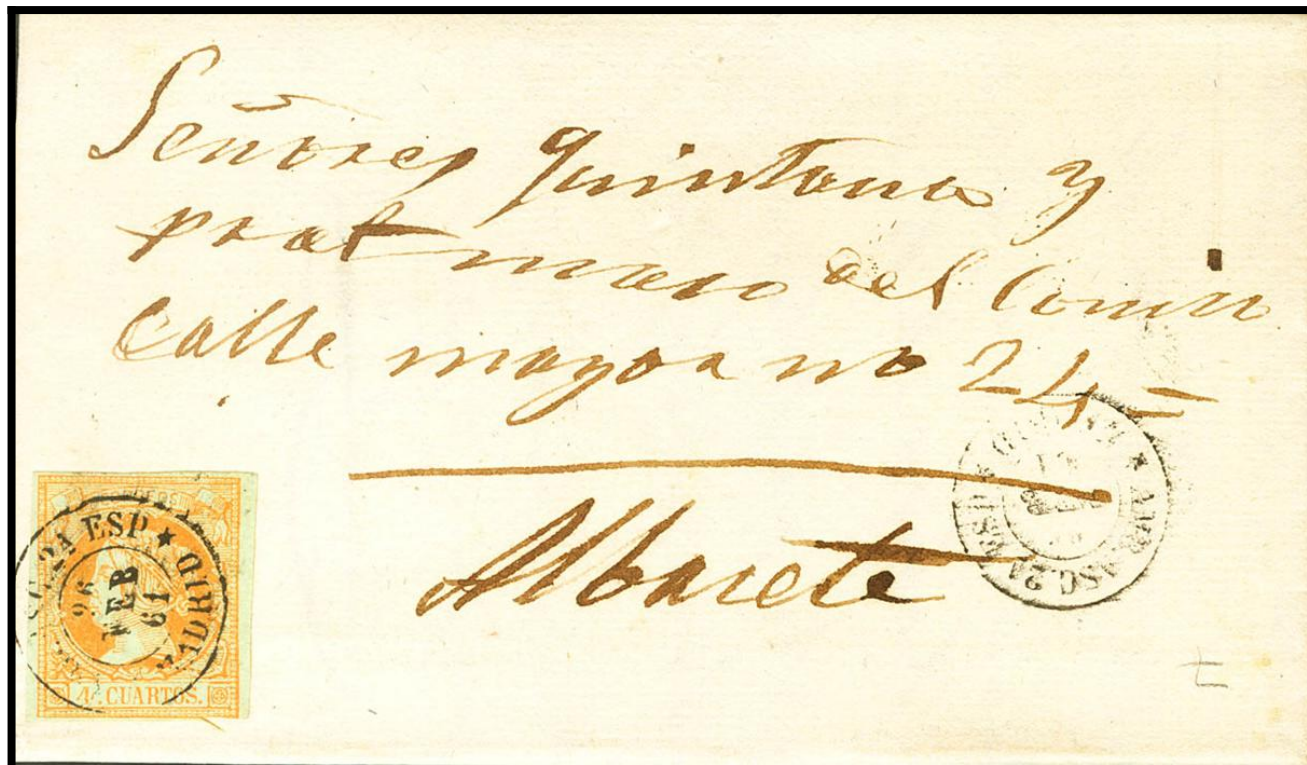 Señores Quintana y
prat maso del Comun
calle mayor no 24 =
Albacete
ESP ★ MADRID
26
FEB
61
4 CUARTOS.